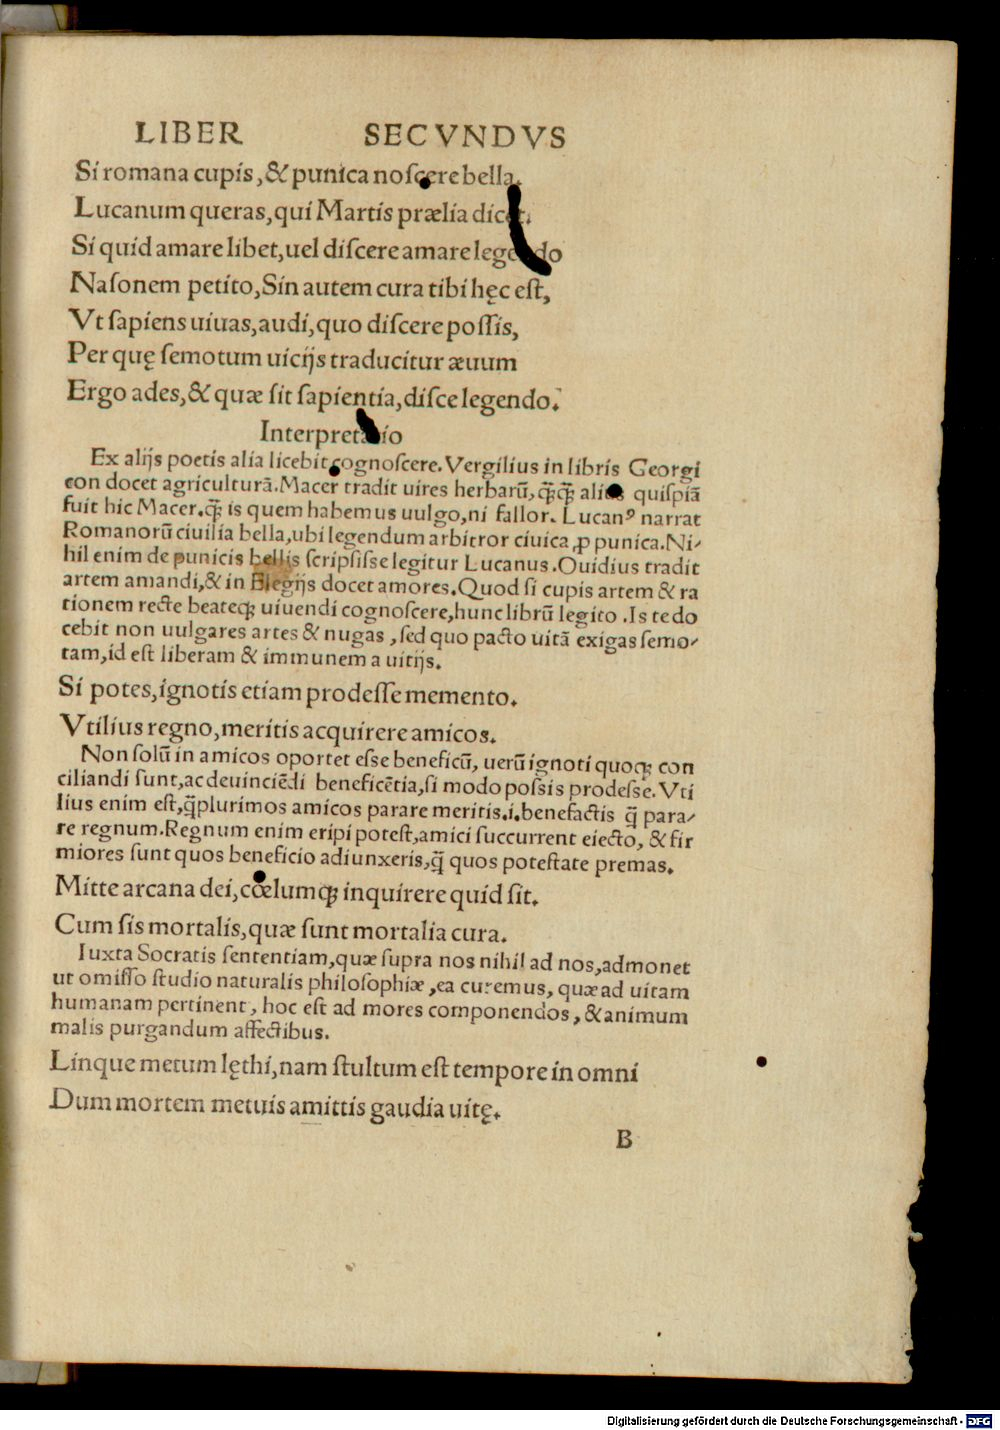 LIBER SECVNDVS
Si romana cupis, & punica noſcere bella.
Lucanum queras, qui Martis prælia dicet.
Si quid amare libet, uel diſcere amare legendo
Naſonem petito, Sin autem cura tibi hęc eſt,
Vt ſapiens uiuas, audi, quo diſcere poſſis,
Per quę ſemotum uicijs traducitur æuum
Ergo ades, & quæ ſit ſapientia, diſce legendo.
Interpretatio
Ex alijs poetis alia licebit cognoſcere. Vergilius in libris Georgi
con docet agriculturā. Macer tradit uires herbarū, q̄q̄ alius quiſpiā
fuit hic Macer. q̄ is quem habemus uulgo, ni fallor. Lucanꝰ narrat
Romanorū ciuilia bella, ubi legendum arbitror ciuica ꝓ punica. Ni-
hil enim de punicis bellis ſcripſiſse legitur Lucanus. Ouidius tradit
artem amandi, & in Elegijs docet amores. Quod ſi cupis artem & ra
tionem recte beateqꝫ uiuendi cognoſcere, hunc librū legito. Is te do
cebit non uulgares artes & nugas, ſed quo pacto uitā exigas ſemo-
tam, id eſt liberam & immunem a uitijs.
Si potes, ignotis etiam prodeſſe memento.
Vtilius regno, meritis acquirere amicos.
Non ſolū in amicos oportet eſse beneficū, uerū ignoti quoqꝫ con
ciliandi ſunt, ac deuinciēdi beneficētia, ſi modo poſsis prodeſse. Vti
lius enim eſt, q̄ plurimos amicos parare meritis .i. benefactis q̄ para-
re regnum. Regnum enim eripi poteſt, amici ſuccurrent eiecto, & fir
miores ſunt quos beneficio adiunxeris, q̄ quos poteſtate premas.
Mitte arcana dei, cœlumqꝫ inquirere quid ſit.
Cum ſis mortalis, quæ ſunt mortalia cura.
Iuxta Socratis ſententiam, quæ ſupra nos nihil ad nos, admonet
ut omiſſo ſtudio naturalis philoſophiæ, ea curemus, quæ ad uitam
humanam pertinent, hoc eſt ad mores componendos, & animum
malis purgandum affectibus.
Linque metum lęthi, nam ſtultum eſt tempore in omni
Dum mortem metuis amittis gaudia uitę.
B
Digitalisierung gefördert durch die Deutsche Forschungsgemeinschaft - DFG